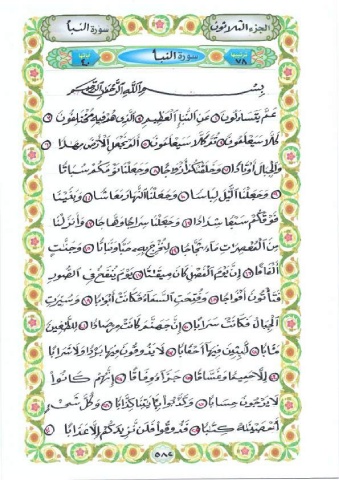 الجزء الثلاثون سورة النبأ
ترتيبها ٧٨ سورة النبأ آياتها ٤٠
بسم الله الرحمن الرحيم
عم يتساءلون عن النبإ العظيم الذي هم فيه مختلفون
كلا سيعلمون ثم كلا سيعلمون ألم نجعل الأرض مهدا
والجبال أوتادا وخلقنكم أزوجا وجعلنا نومكم سباتا
وجعلنا اليل لباسا وجعلنا النهار معاشا وبنينا
فوقكم سبعا شدادا وجعلنا سراجا وهاجا وأنزلنا
من المعصرات ماء ثجاجا لنخرج به حبا ونباتا وجنت
ألفافا إن يوم الفصل كان ميقتا يوم ينفخ في الصور
فتأتون أفواجا وفتحت السماء فكانت أبوابا وسيرت
الجبال فكانت سرابا إن جهنم كانت مرصادا للطغين
مابا لبثين فيها أحقابا لا يذوقون فيها بردا ولا شرابا
إلا حميما وغساقا جزاء وفاقا إنهم كانوا
لا يرجون حسابا وكذبوا بايتنا كذابا وكل شيء
أحصينه كتبا فذوقوا فلن نزيدكم إلا عذابا
٥٨٢